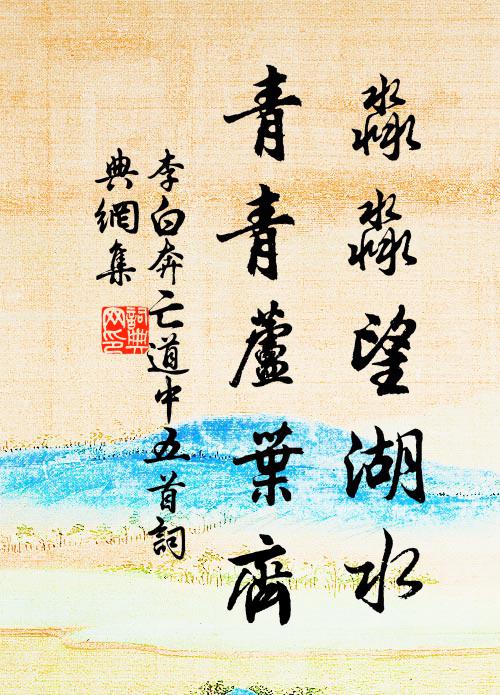 淼淼望湖水
青青蘆葉齊
李白奔亡道中五首詞
典網集
詞典
网印